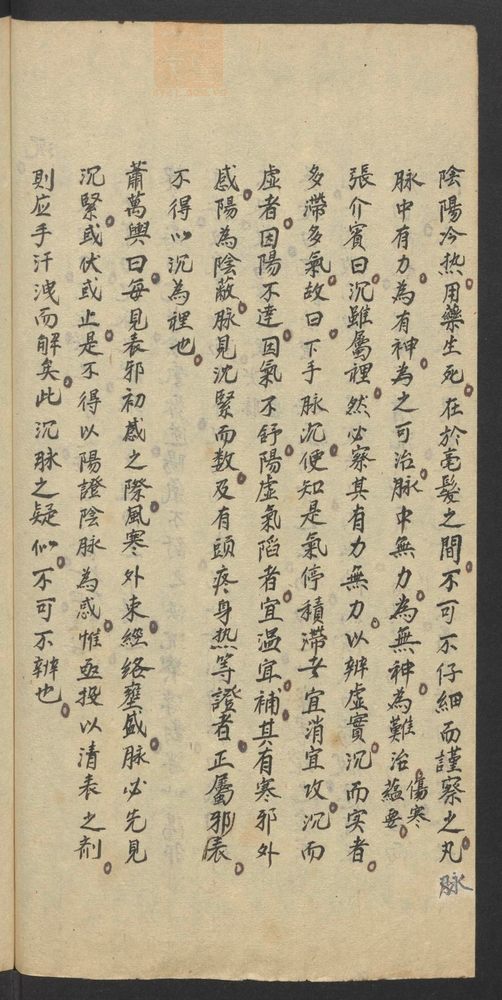 陰陽冷热用藥生死在於毫髮之間不可不仔細而謹察之凡脉
脉中有力為有神為之可治脉中無力為無神為難治傷寒蘊要
張介賓曰沉雖屬裡然必察其有力無力以辨虛實沉而实者
多滯多氣故曰下手脉沉便知是氣停積滯者宜消宜攻沉而
虛者因陽不達因氣不舒陽虛氣陷者宜温宜補其有寒邪外
感陽為陰蔽脉見沈緊而数及有頭疼身热等證者正屬邪表
不得以沉為裡也
蕭萬輿曰每見表邪初感之際風寒外束經絡壅盛脉必先見
沉緊或伏或止是不得以陽證陰脉為惑惟亟投以清表之剤
則应手汗洩而解矣此沉脉之疑似不可不辨也